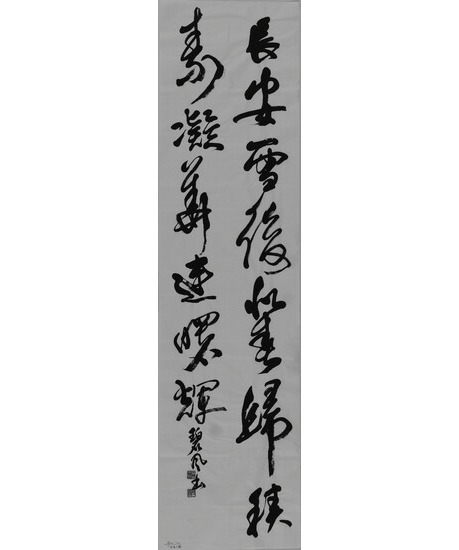 長安雪後似春歸積
素凝華連曙輝
碧风书